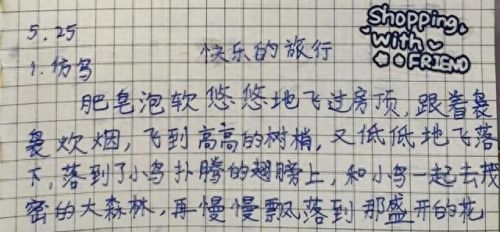 Shopping
With
FRIEND
5.25
1.仿写
快乐的旅行
肥皂泡软悠悠地飞过房顶,跟着袅
袅炊烟,飞到高高的树梢,又低低地飞落
下,落到了小鸟扑腾的翅膀上,和小鸟一起去茂
密的大森林,再慢慢飘落到那盛开的花